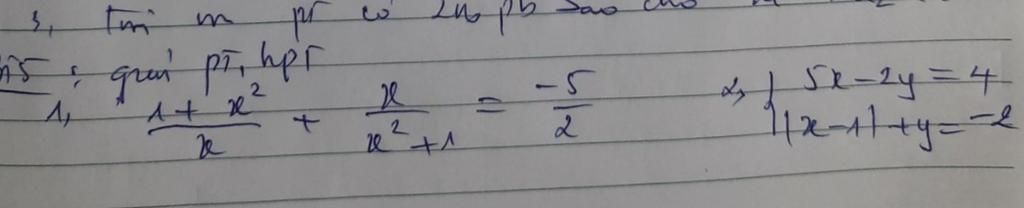 3, Tìm m pt có 2no pb sao cho
5 : giải pt, hpt
1, (1 + x²)/x + x/(x² + 1) = -5/2
2, { 5x - 2y = 4
|x - 1| + y = -2